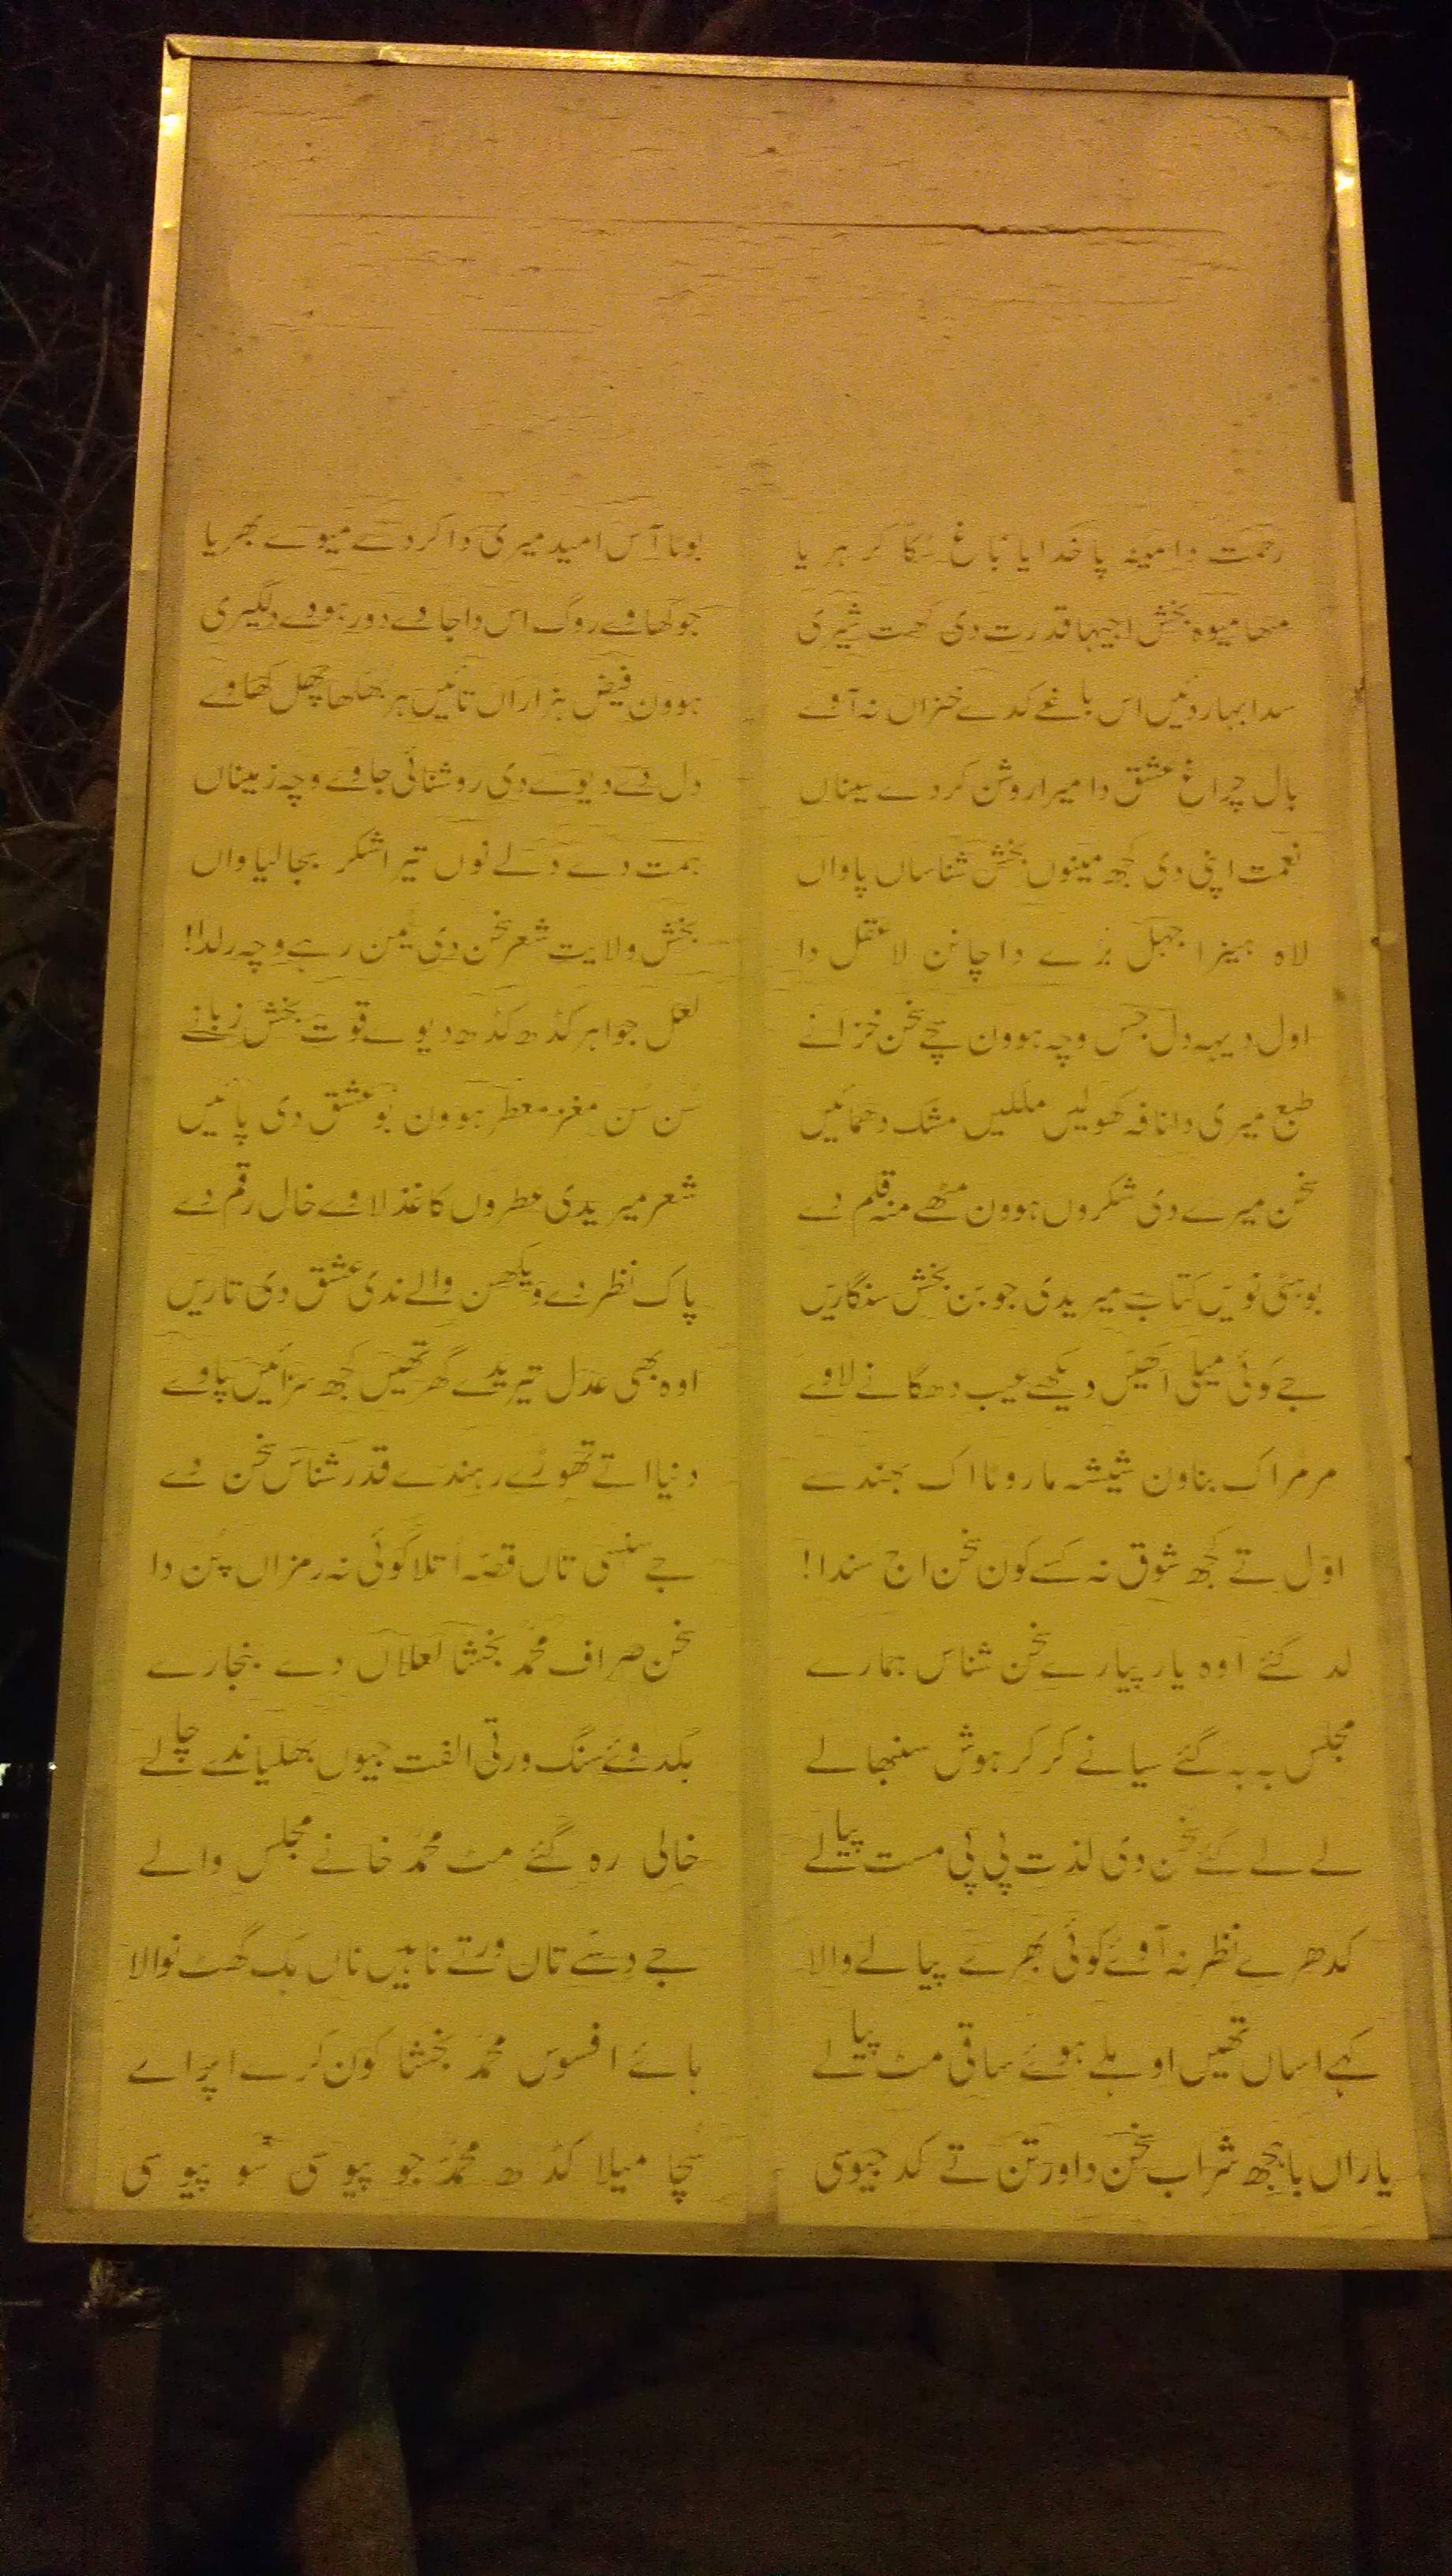 رحمت دا مینہ پا خدایا باغ سکا کر ہریا بوٹا آس امید میری دا کر دے میوے بھریا
مٹھا میوہ بخش اجیہا قدرت دی گھت شیری جو کھاوے روگ اس دا جاوے دور ہووے دلگیری
سدا بہار دئیں اس باغے کدے خزاں نہ آوے ہوون فیض ہزاراں تائیں ہر بھکھا پھل کھاوے
بال چراغ عشق دا میرا روشن کر دے سیناں دل دے دیوے دی روشنائی جاوے وچہ زمیناں
نعمت اپنی دی کجھ مینوں بخش شناساں پاواں ہمت دے دلے نوں تیرا شکر بجا لیاواں
لاہ ہنیرا جہل برے دا چانن لا عقل دا بخش ولایت شعر سخن دی یمن رہے وچہ رلدا!
اول دیہہ دل جس وچہ ہوون سچے سخن خزانے لعل جواہر کڈھ کڈھ دیوے قوت بخش زبانے
طبع میری دا نافہ کھولیں ملکیں مشک دھمائیں سن سن مغز معطر ہوون بو عشق دی پائیں
سخن میرے دی شکروں ہوون مٹھے منہ قلم دے شعر میریدی عطروں کاغذ لاوے خال رقم دے
بوہتی نویں کتاب میریدی جوبن بخش سنگاریں پاک نظر دے ویکھن والے ندی عشق دی تاریں
جے کوئی میلی اکھیں ویکھے عیب دھگانے لاوے اوہ بھی عدل تیریدے گھر تھیں کجھ سزائیں پاوے
مر مر اک بناون شیشہ مار وٹا اک بھندے دنیا اتے تھوڑے رہندے قدر شناس سخن دے
اوّل تے کجھ شوق نہ کسے کون سخن اج سندا! جے سنسی تاں قصّہ اتلا کوئی نہ رمزاں پُن دا
لد گئے اوہ یار پیارے سخن شناس ہمارے سخن صراف محمّد بخشا لعلاں دے بنجارے
مجلس بہ بہ گئے سیانے کر کر ہوش سنبھالے ہکدوئے سنگ ورتی الفت جیوں بھلیاندے چالے
لے لے گئے سخن دی لذت پی پی مست پیالے خالی رہ گئے مٹ محمّد خانے مجلس والے
کدھرے نظر نہ آوے کوئی بھرے پیالے والا جے دسے تاں ورتے ناہیں ناں ہک گھٹ نوالا
کہے اساں تھیں اوہلے ہوئے ساقی مٹ پیالے ہائے افسوس محمّد بخشا کون کرے اپرالے
یاراں باجھ شراب سخن دا ورتن تے کد جیوسی سچا میلا کڈھ محمّد جو پیوسی سو پیوسی